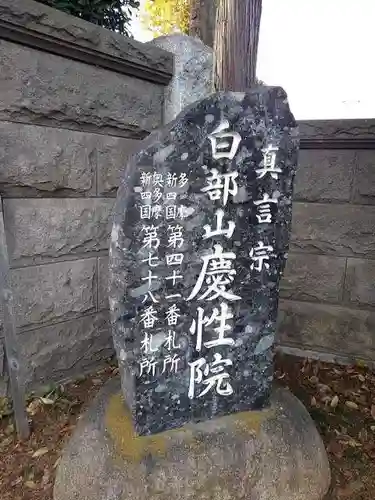 真言宗
白部山慶性院
多摩
新四国 第四十一番札所
奥多摩
新四国 第七十八番札所